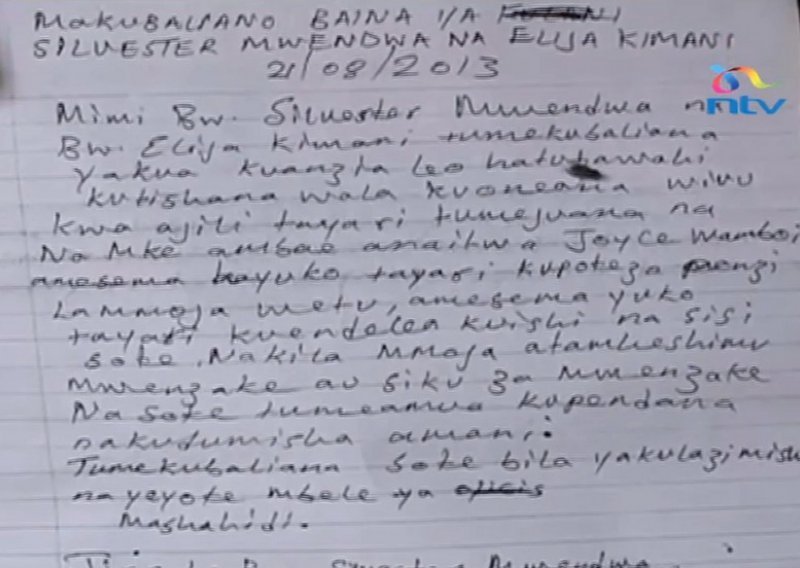 MAKUBALIANO BAINA YA
SILVESTER MWENDWA NA ELIJA KIMANI
21/08/2013
ntv
Mimi Bw. Silvester Mwendwa na
Bw. Elija Kimani tumekubaliana
yakua kuanzia Leo hatutawahi
kutishana wala kuoneana wivu
kwa ajili tayari tumejuana na
Na Mke ambae anaitwa Joyce Wamboi
amesema hayuko tayari kupoteza penzi
La mmoja wetu, amesema yuko
tayari kuendelea kuishi na sisi
sote. Nakila mmoja atamheshimu
Mwenzake au siku za mwenzake
Na sote tumeamua kupendana
nakudumisha amani.
Tumekubaliana sote bila yakulazimish
na yeyote mbele ya
Mashahidi.
Mwendwa.